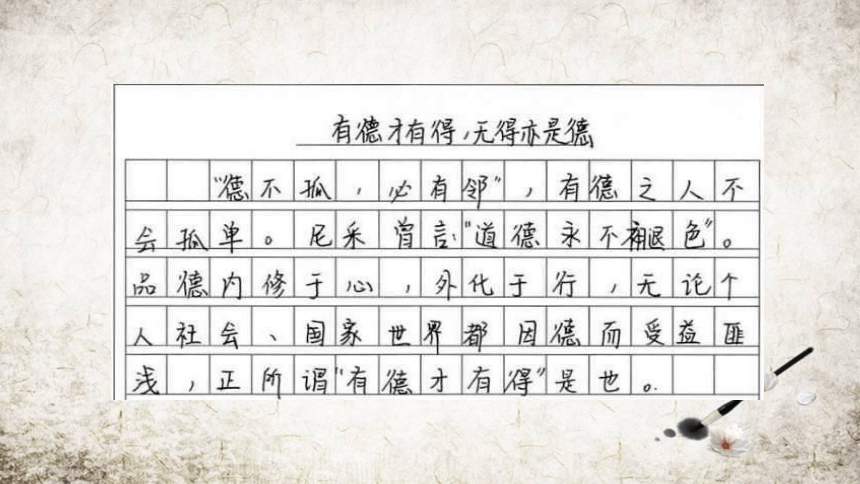 有德才有得,无得亦是德
“德不孤,必有邻”,有德之人不
会孤单。尼采曾言:“道德永不褪色”。
品德内修于心,外化于行,无论个
人社会、国家世界都因德而受益匪
浅,正所谓“有德才有得”是也。